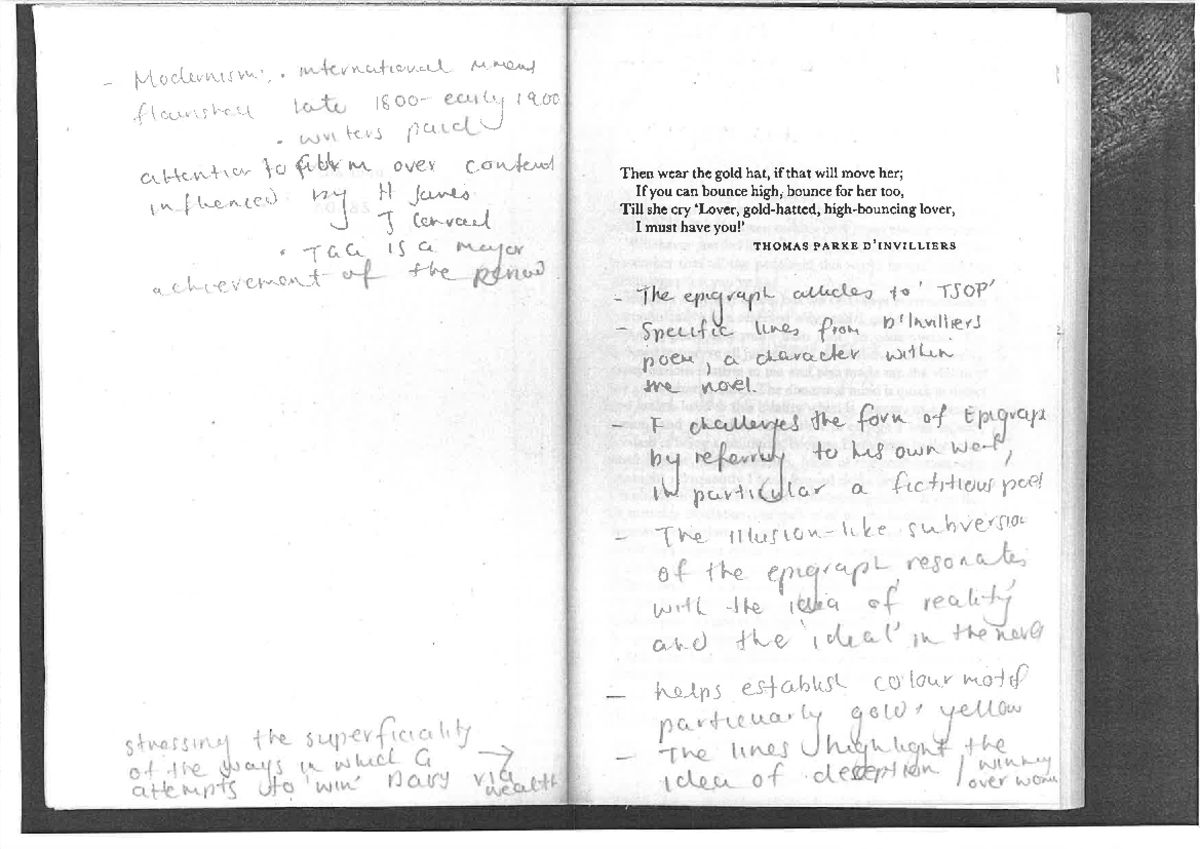 - Modernism: • international
flourished late 1800- early 1900
• writers paid
attention to form over content
influenced by H James
J Conrad
• TGG is a major
achievement of the period
stressing the superficiality
of the ways in which G →
attempts to 'win' Daisy via
wealth
Then wear the gold hat, if that will move her;
If you can bounce high, bounce for her too,
Till she cry 'Lover, gold-hatted, high-bouncing lover,
I must have you!'
THOMAS PARKE D'INVILLIERS
- The epigraph alludes to 'TSOP'
- Specific lines from D'Invilliers
poem, a character within
the novel.
- F challenges the form of Epigraph
by referring to his own work,
in particular a fictitious poet
- The illusion-like subversion
of the epigraph resonates
with the idea of 'reality'
and the 'ideal' in the novel
- helps establish colour motif
particularly gold + yellow
- The lines highlight the
idea of deception / winning
over women